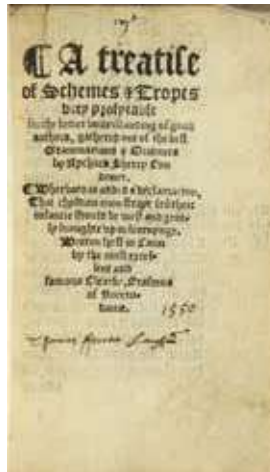 ¶ A treatise
of Schemes & Tropes
very profytable
for the better vnderstanding of good
authors, gathered out of the best
Grammarians & Oratours
by Rychard Sherry Lon
doner.
¶ Whervnto is added a declamacion,
That chyldren euen strayt frõ their
infancie should be well and gent-
ly broughte vp in learnynge.
Written fyrst in Latin
by the most excel-
lent and
famous Clearke, Erasmus
of Rotero-
dame.
1550